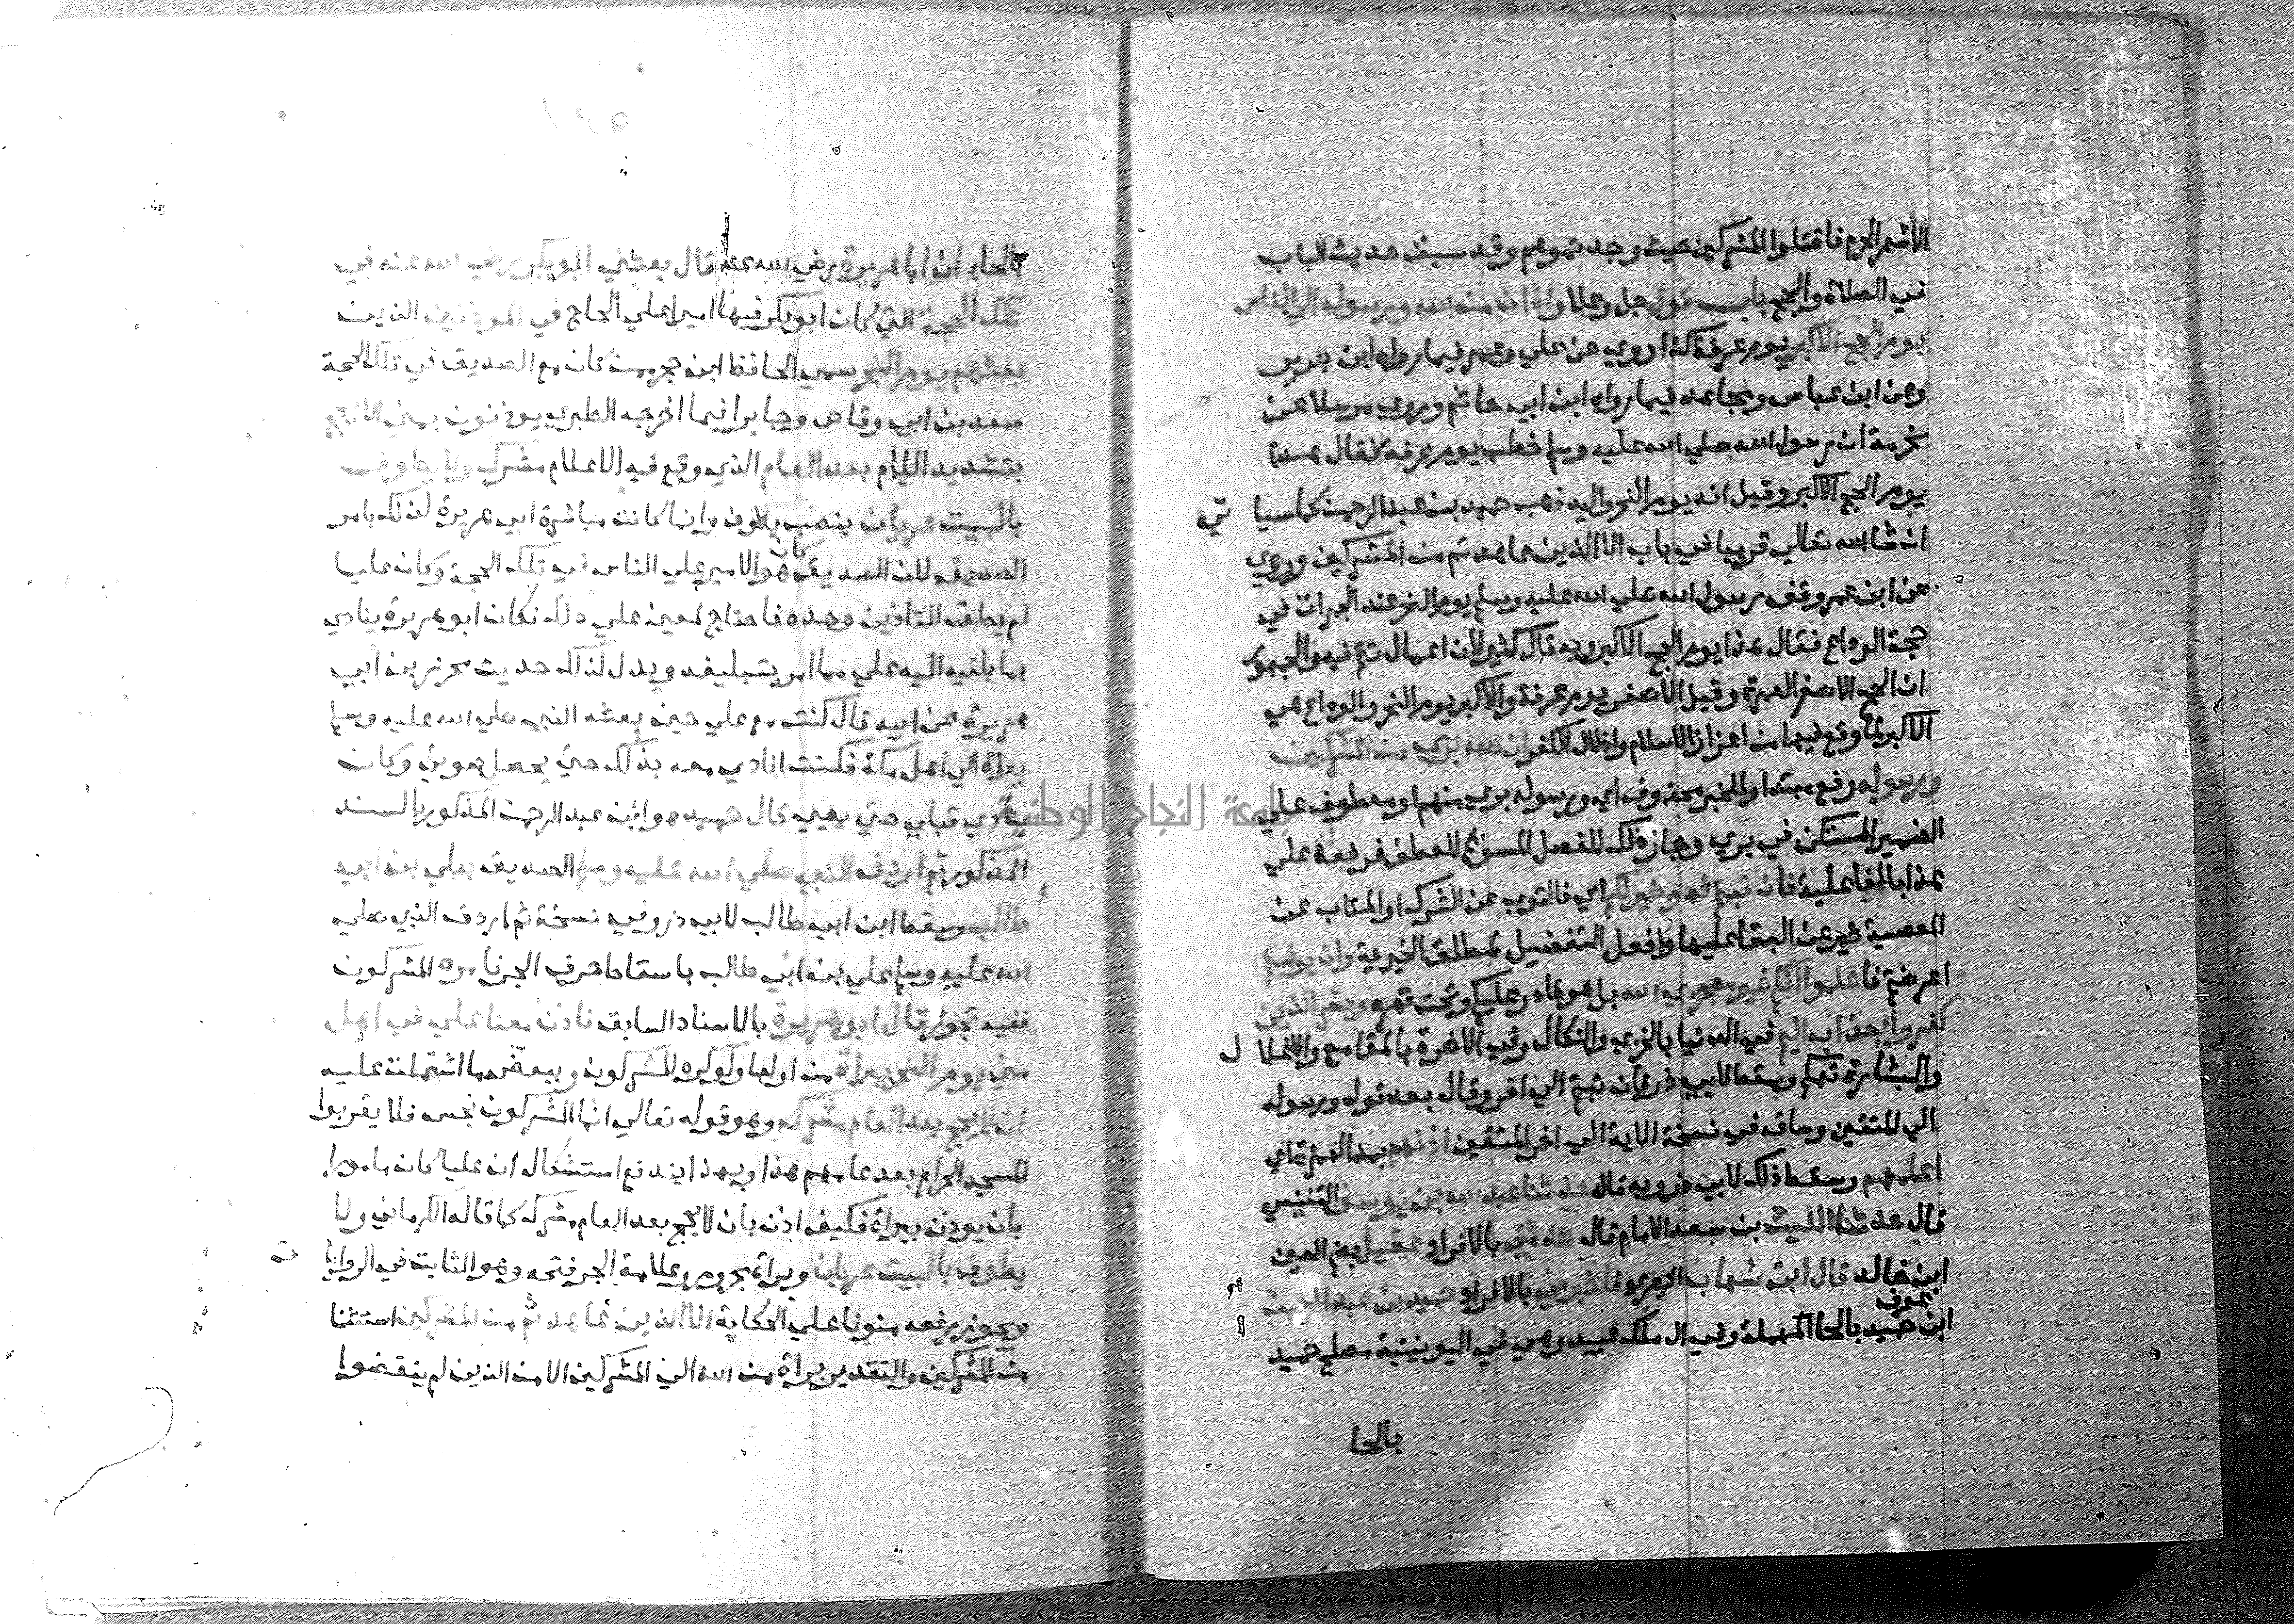 الاشهر الحرم فاقتلوا المشركين حيث وجدتموهم وقد سبق حديث الباب
في الصلاة والحج باب قوله جل وعلا واذان من الله ورسوله الي الناس
يوم الحج الاكبر يوم عرفة كذا روي عن علي وعمر فيما رواه ابن جرير
وعن ابن عباس ومجاهد فيما رواه ابن ابي حاتم وروي مرسلا عن
مخرمة ان رسول الله صلي الله عليه وسلم خطب يوم عرفة فقال هذا
يوم الحج الاكبر وقيل انه يوم النحر واليه ذهب حميد بن عبد الرحمن كما سياتي
ان شا الله تعالي قريبا في باب الا الذين عاهدتم من المشركين وروي
عن ابن عمر وقف رسول الله صلي الله عليه وسلم يوم النحر عند الجمرات في
حجة الوداع فقال هذا يوم الحج الاكبر وبه قال كثير لان اعمال تتم فيه والجمهور
ان الحج الاصغر العمرة وقيل الاصغر يوم عرفة والاكبر يوم النحر والوداع هي
الاكبر لما وقع فيها من اعزاز الاسلام واذلال الكفر ان الله بري من المشركين
ورسوله رفع مبتدا والخبر محذوف اي ورسوله بري منهم او معطوف علي
الضمير المستكن في بري وجاز ذلك للفصل المسوغ للعطف فرفعه علي
هذا بالفاعلية فان تبتم فهو خير لكم اي فالتوب عن الشرك او المتاب عن
المعصية خير عن البقا عليها وافعل التفضيل لمطلق الخيرية وان توليتم
اعرضتم فاعلموا انكم غير معجزي الله بل هو قادر عليكم وتحت قهره وبشر الذين
كفروا بعذاب اليم في الدنيا بالخزي والنكال وفي الاخرة بالمقامع والاغلال
والبشارة تهكم وسقط لابي ذر فان تبتم الي اخره وقال بعد قوله ورسوله
الي المتقين وساق في نسخة الاية الي اخر المتقين اذنهم بمد الهمزة اي
اعلمهم وسقط ذلك لابي ذر وبه قال حدثنا عبد الله بن يوسف التنيسي
قال حدثنا الليث بن سعد الامام قال حدثني بالافراد عقيل بضم العين
ابن خالد قال ابن شهاب الزهري فاخبرني بالافراد حميد بن عبد الرحمن
ابن عوف حميد بالحا المهملة وفي ال ملك عبيد وهي في اليونينية مصلح حميد
بالحا
بالحا ان ابا هريرة رضي الله عنه قال بعثني ابو بكر رضي الله عنه في
تلك الحجة التي كان ابو بكر فيها اميرا علي الحاج في المؤذنين الذين
بعثهم يوم النحر سمي الحافظ ابن حجر ممن كان مع الصديق في تلك الحجة
سعد بن ابي وقاص وجابرا فيما اخرجه الطبري يؤذنون بمني الا يحج
بتشديد اللام بعد العام الذي وقع فيه الاعلام مشرك ولا يطوف
بالبيت عريان بنصب يطوف وانما كانت مباشرة ابي هريرة لذلك بامر
الصديق لان الصديق كان هو الامير علي الناس في تلك الحجة وكان عليا
لم يطق التاذين وحده فاحتاج لمعين علي ذلك فكان ابو هريرة ينادي
بما يلقيه اليه علي مما امر بتبليغه ويدل لذلك حديث محرز بن ابي
هريرة عن ابيه قال كنت مع علي حين بعثه النبي صلي الله عليه وسلم
ببراة الي اهل مكة فكنت انادي معه بذلك حتي يصحل صوتي وكان
ينادي قبلي حتي يعيي قال حميد هو ابن عبد الرحمن المذكور بالسند
المذكور ثم اردف النبي صلي الله عليه وسلم الصديق بعلي بن ابي
طالب وسقط ابن ابي طالب لابي ذر وفي نسخة ثم اردف النبي صلي
الله عليه وسلم علي بن ابي طالب باسقاط حرف الجر فامره المشركون
ففيه تجوز قال ابو هريرة بالاسناد السابق فاذن معنا علي في اهل
مني يوم النحر ببراة من اولها ولو كره المشركون وببعض ما اشتملت عليه
ان لا يحج بعد العام مشرك وهو قوله تعالي انما المشركون نجس فلا يقربوا
المسجد الحرام بعد عامهم هذا وبهذا يندفع استشكال ان عليا كان مامورا
بان يوذن ببراة فكيف اذن بان لا يحج بعد العام مشرك كما قاله الكرماني ولا
يطوف بالبيت عريان وبراة مجرور وعلامة الجر فتحه وهو الثابت في الروايات
ويجوز رفعه منونا علي الحكاية الا الذين عاهدتم من المشركين استثنا
من المشركين والتقدير براة من الله الي المشركين الا من الذين لم ينقضوا
جامعة النجاح الوطنية